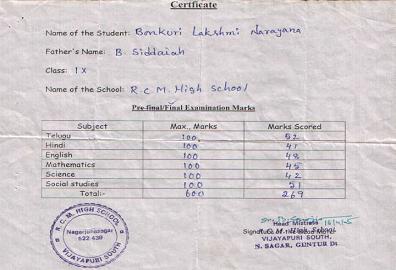 Certificate
Name of the Student: Bonkuri Lakshmi Narayana
Father's Name: B. Siddaiah
Class: IX
Name of the School: R.C.M. High School
Pre-final/Final Examination Marks
Subject Max., Marks Marks Scored
Telugu 100 52
Hindi 100 41
English 100 48
Mathematics 100 45
Science 100 42
Social studies 100 51
Total:- 600 269
R. C. M. HIGH SCHOOL
Nagarjunasagar
522 439
VIJAYAPURI SOUTH
Head Mistress
R. C. M. High School
VIJAYAPURI SOUTH,
N. SAGAR, GUNTUR Dt